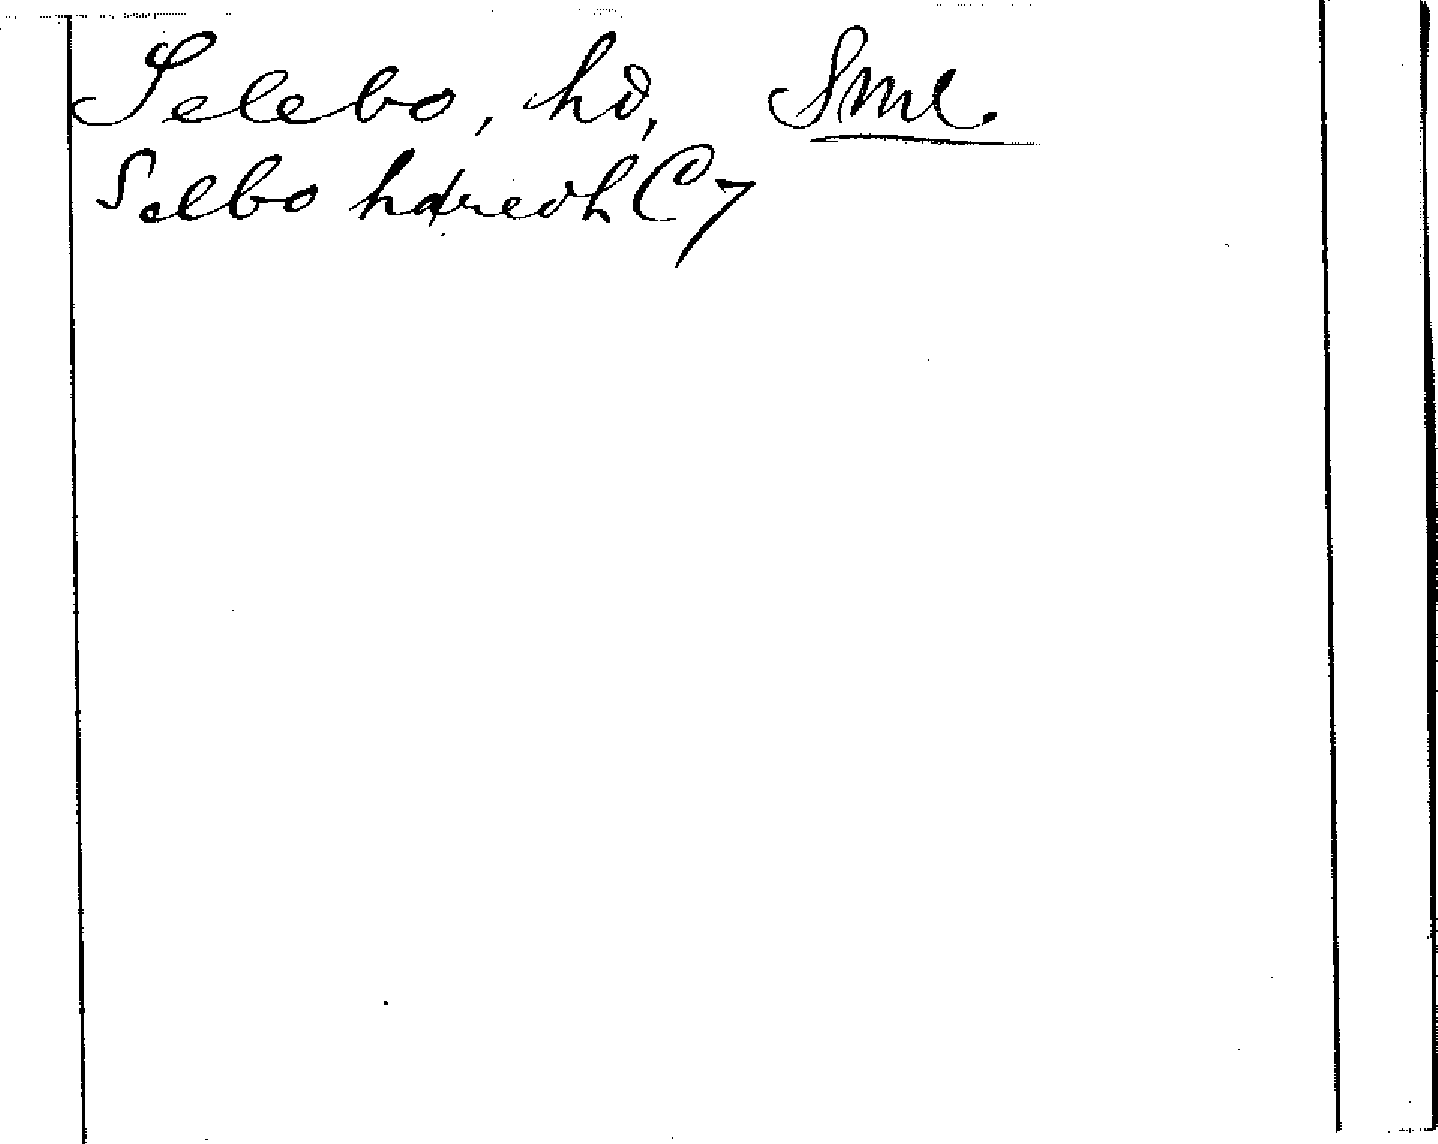 Selebo, hd, Sml.
Selbo hæredh C7